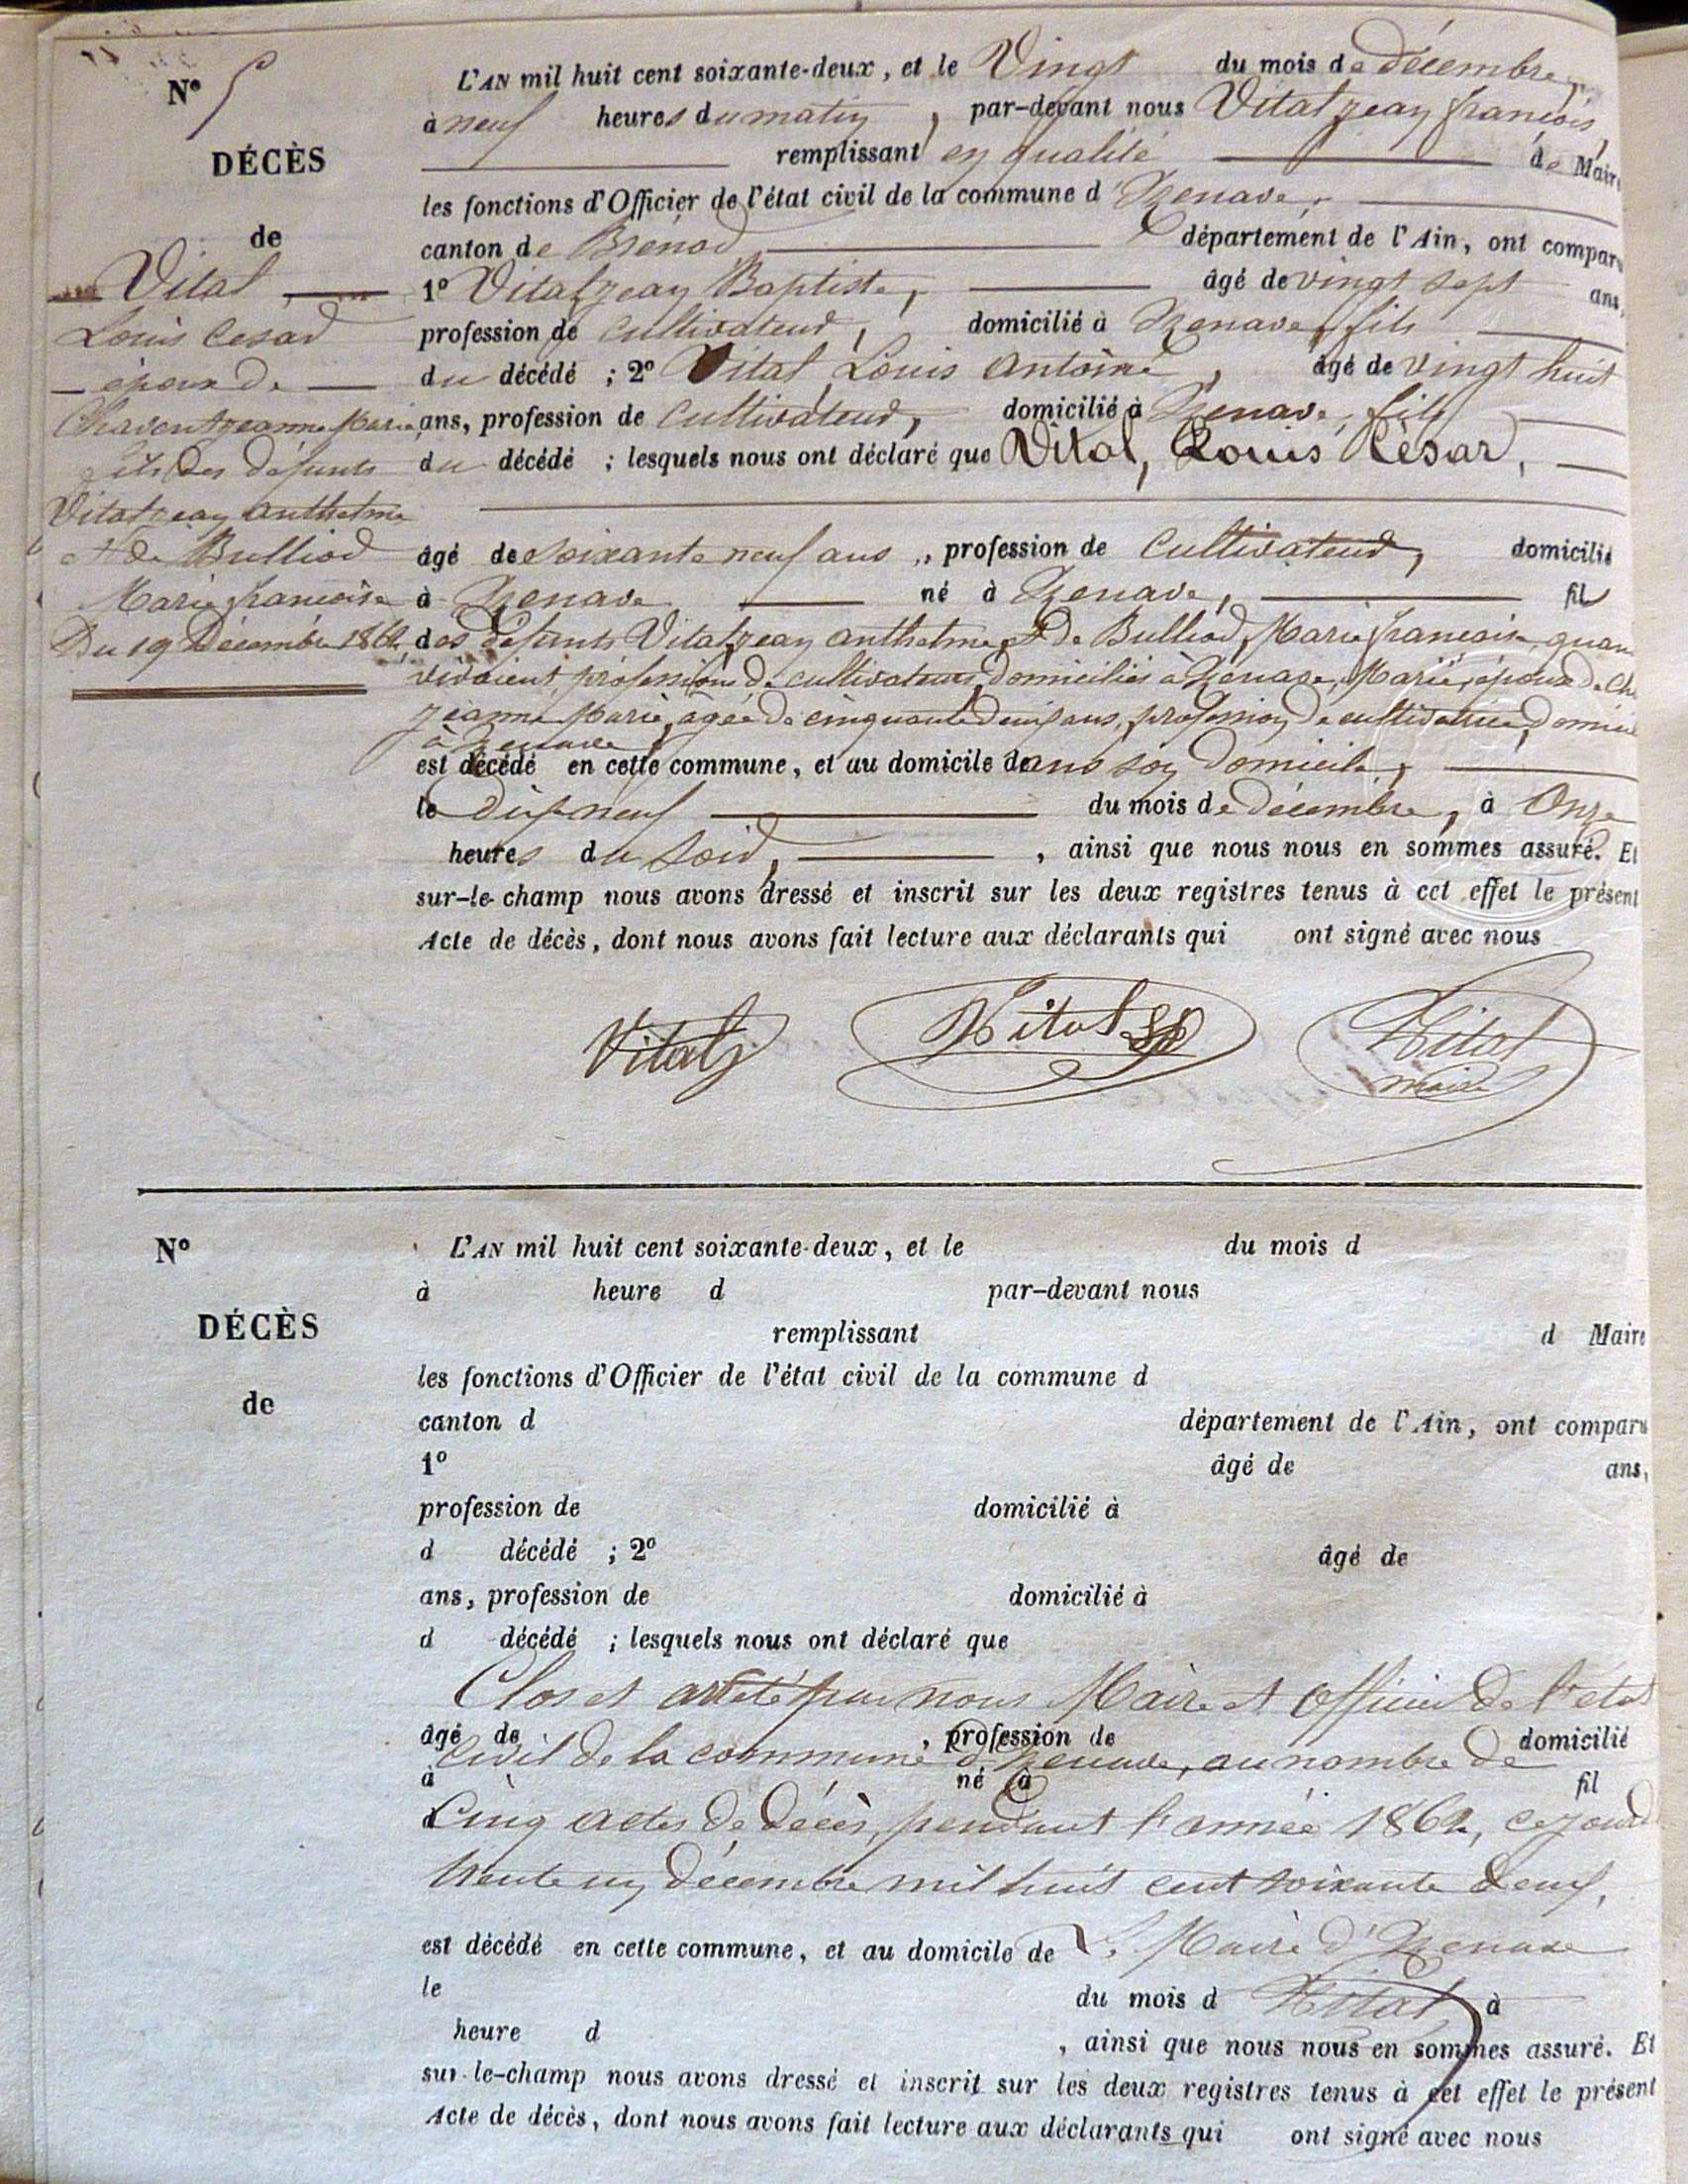 N° 5
DÉCÈS
de
Vital
Louis Cesar
époux de
Chavent Jeanne Marie
fils des défunts
Vital Jean Anthelme
et de Bulliod
Marie françoise
Du 19 Décembre 1862
L'AN mil huit cent soixante-deux, et le Vingt du mois de décembre,
à neuf heures du matin, par-devant nous Vital Jean françois,
remplissant en qualité de Maire
les fonctions d'Officier de l'état civil de la commune d'Izenave,
canton de Brénod, département de l'Ain, ont comparu
1° Vital Jean Baptiste, âgé de vingt sept ans,
profession de cultivateur, domicilié à Izenave, fils
du décédé ; 2° Vital Louis Antoine, âgé de vingt huit
ans, profession de cultivateur, domicilié à Izenave, fils
du décédé ; lesquels nous ont déclaré que Vital, Louis César,
âgé de soixante neuf ans, profession de cultivateur, domicilié
à Izenave né à Izenave, fils
des défunts Vital Jean Anthelme et de Bulliod, Marie françoise, quan
vivaient, profession de cultivateurs, domiciliés à Izenave, Marié, époux de Ch
Jeanne Marie, agée de cinquante deux ans, profession de cultivatrice, domici
à Izenave,
est décédé en cette commune, et au domicile dans son domicile,
le dix neuf du mois de décembre, à Onze
heures du soir, ainsi que nous nous en sommes assuré. Et
sur-le-champ nous avons dressé et inscrit sur les deux registres tenus à cet effet le présent
Acte de décès, dont nous avons fait lecture aux déclarants qui ont signé avec nous
Vital J Vital Vital
maire
N°
DÉCÈS
de
L'AN mil huit cent soixante-deux, et le du mois d
à heure d par-devant nous
remplissant d Maire
les fonctions d'Officier de l'état civil de la commune d
canton d département de l'Ain, ont comparu
1° âgé de ans,
profession de domicilié à
d décédé ; 2° âgé de
ans, profession de domicilié à
d décédé ; lesquels nous ont déclaré que
Clos et arrêté par nous Maire et Officier de l'état
âgé de , profession de domicilié
civil de la commune d'Izenave, au nombre de
à né à fil
d
Cinq actes de décès, pendant l'année 1862, ce jourd
trente un décembre mil huit cent soixante deux,
est décédé en cette commune, et au domicile de Le Maire d'Izenave
le du mois d Vital à
heure d , ainsi que nous nous en sommes assuré. Et
sur-le-champ nous avons dressé et inscrit sur les deux registres tenus à cet effet le présent
Acte de décès, dont nous avons fait lecture aux déclarants qui ont signé avec nous